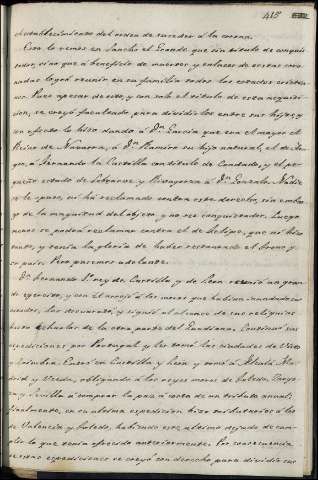 415
establecimiento del orden de suceder a la corona.
Esto lo vemos en Sancho el Grande que sin titulo de conquis-
tador, sino que a beneficio de nuevos y enlaces de estas coro-
nadas logró reunir en su familia todos los estados cristia-
nos. Pues apesar de esto, y con solo el titulo de esta adquisi-
cion, se creyó facultado para dividirlos entre sus hijos, y
en efecto lo hizo dando a Dn. Garcia que era el mayor el
Reino de Navarra, a Dn. Ramiro su hijo natural, el de Ara-
gon, a Fernando la Castilla con titulo de Condado, y el pe-
queño estado de Sobrarve y Rivagorza a Dn. Gonzalo. Nadie
se opuso, ni ha reclamado contra este derecho, sin embar-
go de la magnitud del objeto, y no ser conquistador. Luego
menos se podrá reclamar contra el de
tanto, y tenia la gloria de haber restaurado el trono y
su pais. Pero pasemos adelante.
Dn. Fernando 1.º rey de Castilla, y de Leon reunió un gran-
de ejercito, y con el arrojó a los moros que habian
los derrotó, y siguió al alcance de sus reliquias
hasta echarlos de la otra parte del Guadiana. Continuó sus
expediciones por Portugal y les tomó las ciudades de Viseo
y Coimbra. Entró en Castilla y Leon y tomó a Alcalá, Ma-
drid y Uceda, obligando a los reyes moros de Toledo, Zarago-
za y Sevilla a comprar la paz a costa de un tributo anual;
finalmente, en su ultima expedicion hizo tributarios a los
de Valencia y Toledo, habiendo este ultimo dejado de cum-
plir lo que tenia ofrecido anteriormente. Por consecuencia
de estas expediciones se creyó con derecho para dividir sus